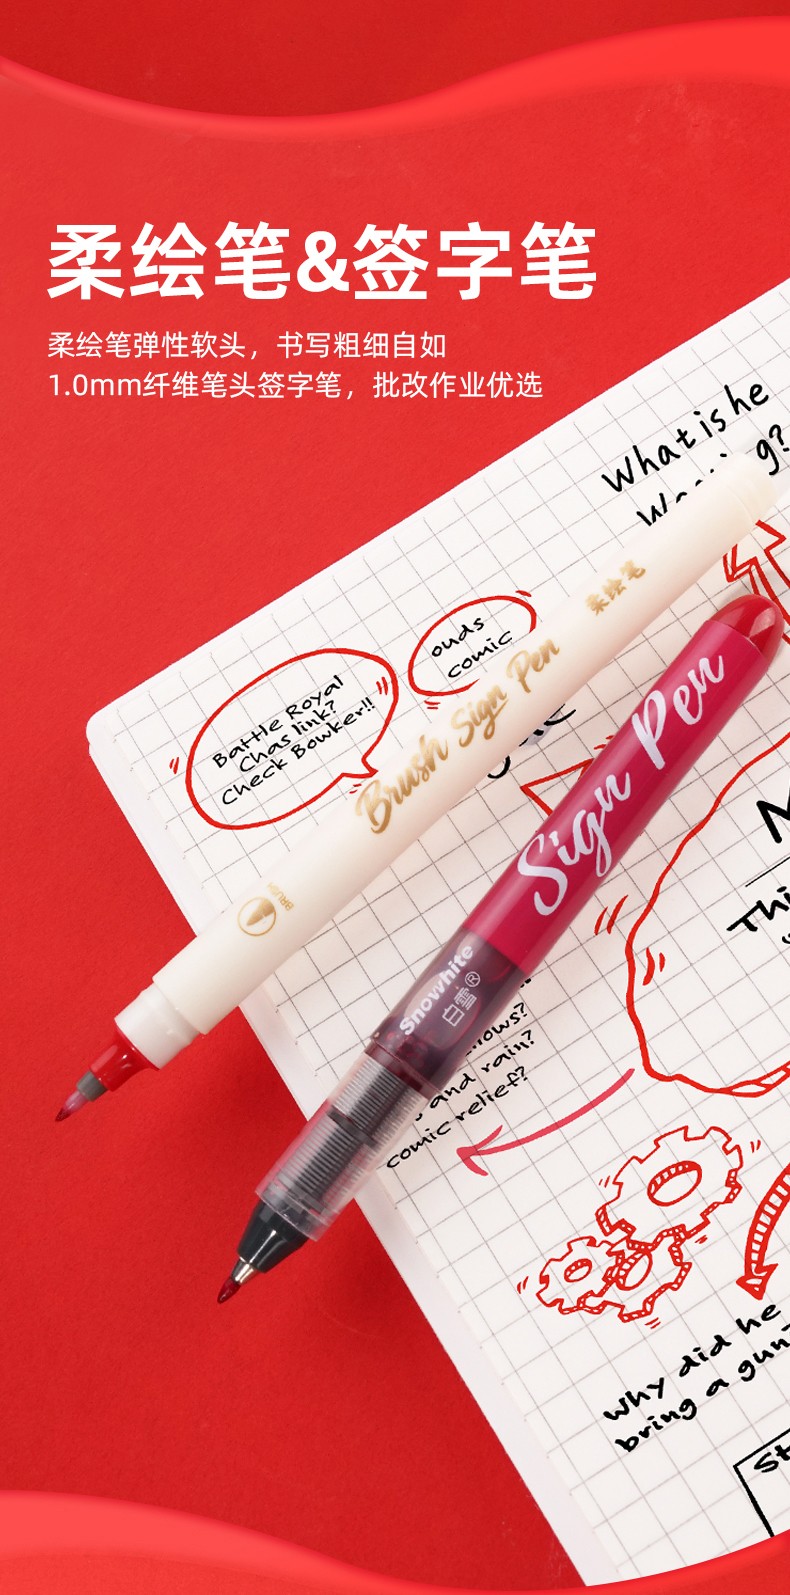 柔绘笔&签字笔
柔绘笔弹性软头，书写粗细自如
1.0mm纤维笔头签字笔，批改作业优选
What is he
g?
ouds
comic
柔绘笔
Brush Sign Pen
BRUSH
Battle Royal
Chas link?
Check Bowker!!
Sign Pen
Snowhite
白雪®
Thi
nows?
and rain?
comic relief?
Why did he
bring a gun